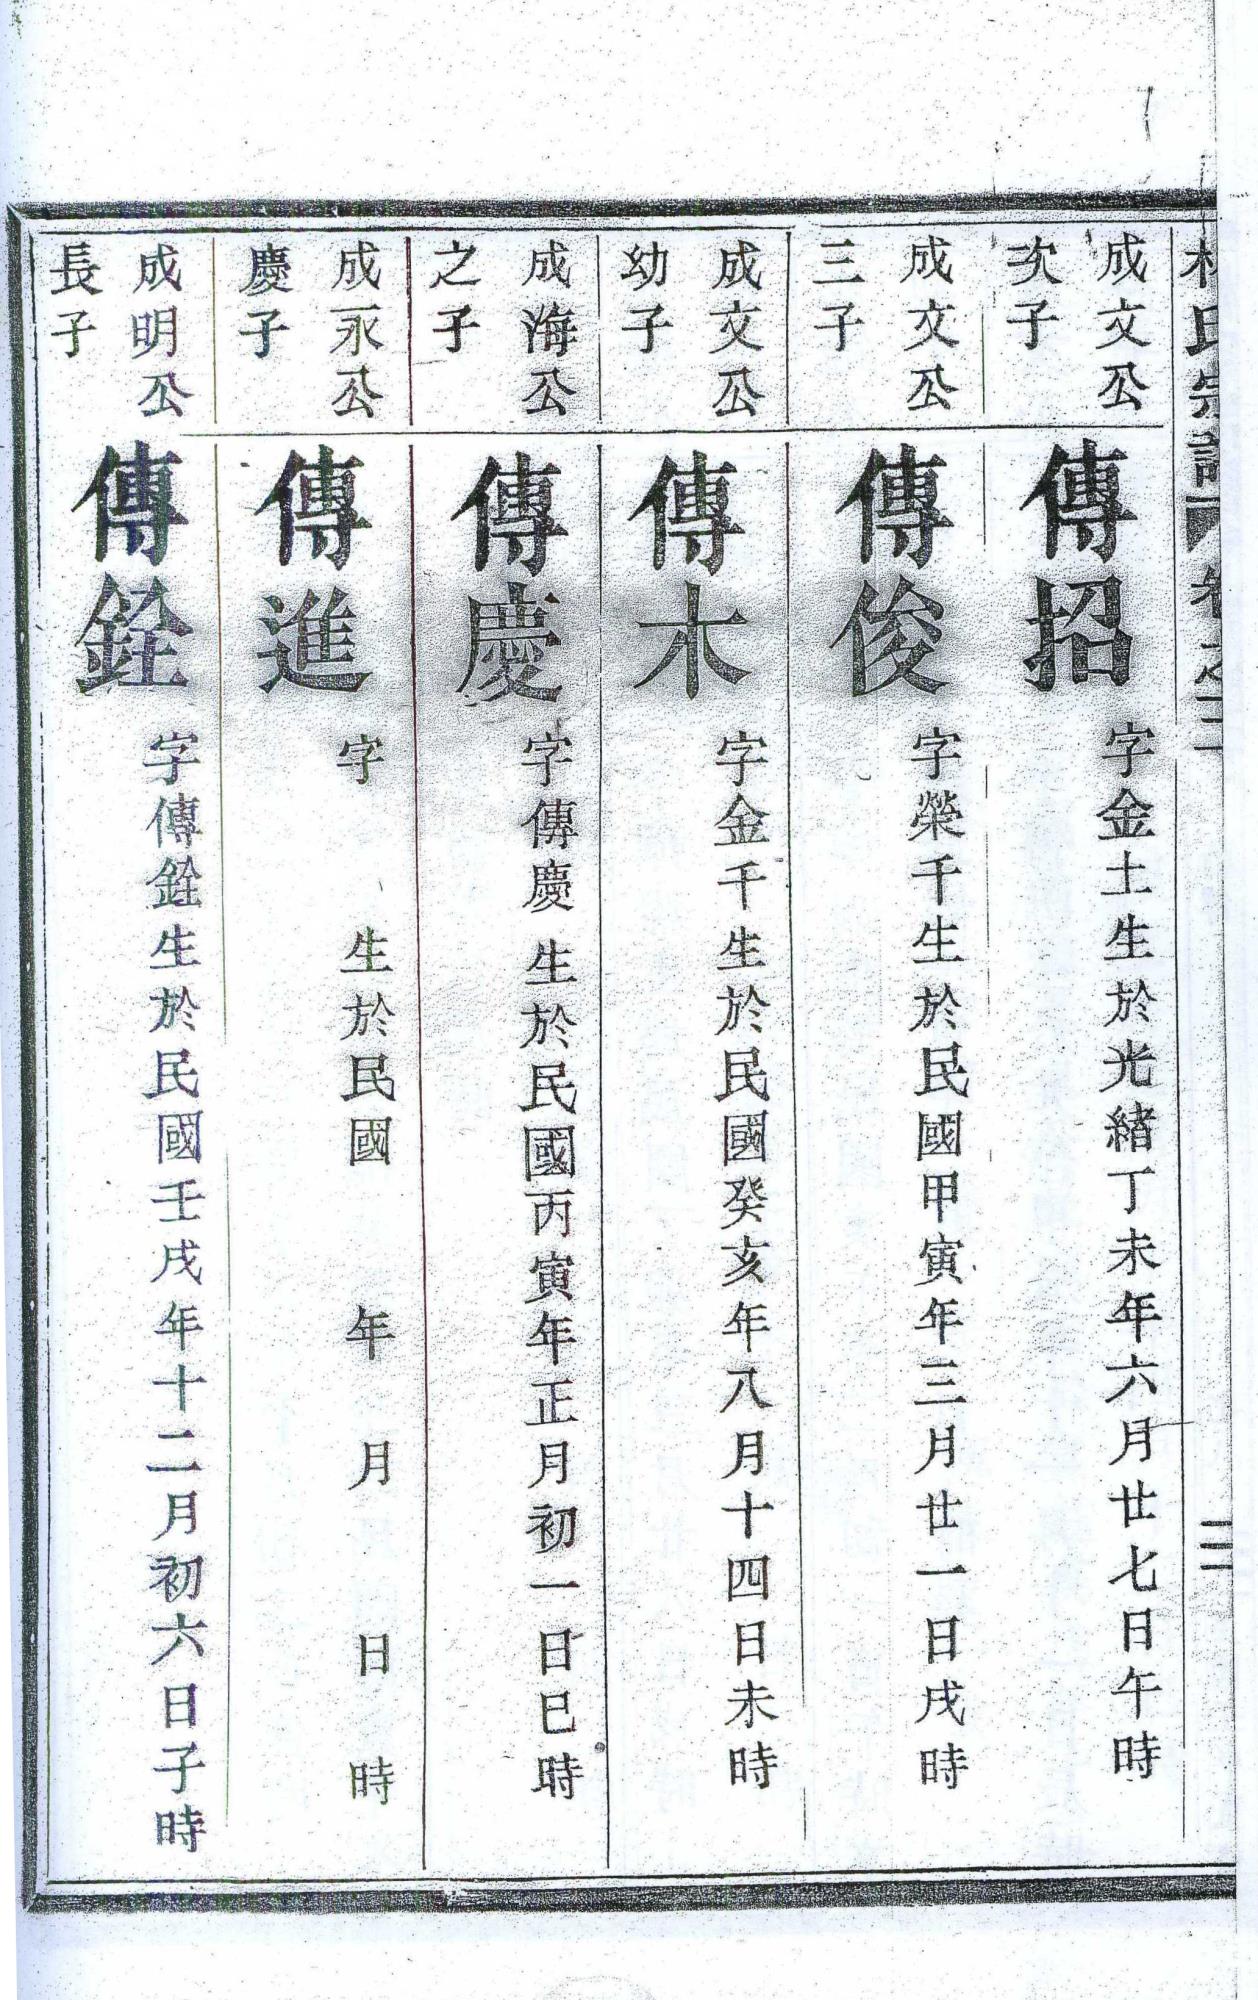 氏宗譜 卷之二
三
成文公
次子
傳招
字金土生於光緒丁未年六月廿七日午時
成文公
三子
傳俊
字榮千生於民國甲寅年三月廿一日戌時
成文公
幼子
傳木
字金千生於民國癸亥年八月十四日未時
成海公
之子
傳慶
字傳慶生於民國丙寅年正月初一日巳時
成永公
慶子
傳進
字 生於民國 年 月 日 時
成明公
長子
傳銓
字傳銓生於民國壬戌年十二月初六日子時